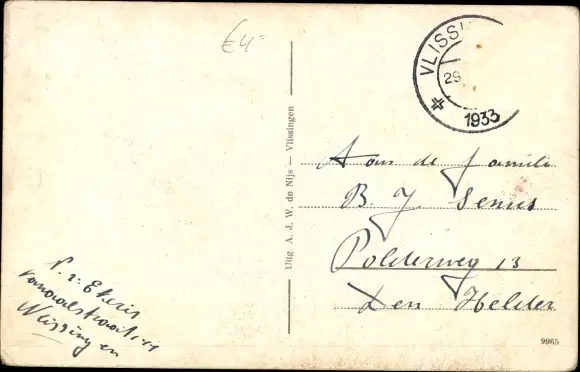 €4=
VLISSI
29
1933
Uitg. A. J. W. de Nijs — Vlissingen
Aan de familie
B. J. Senus
Polderweg 13
Den Helder
Vlissingen
9965